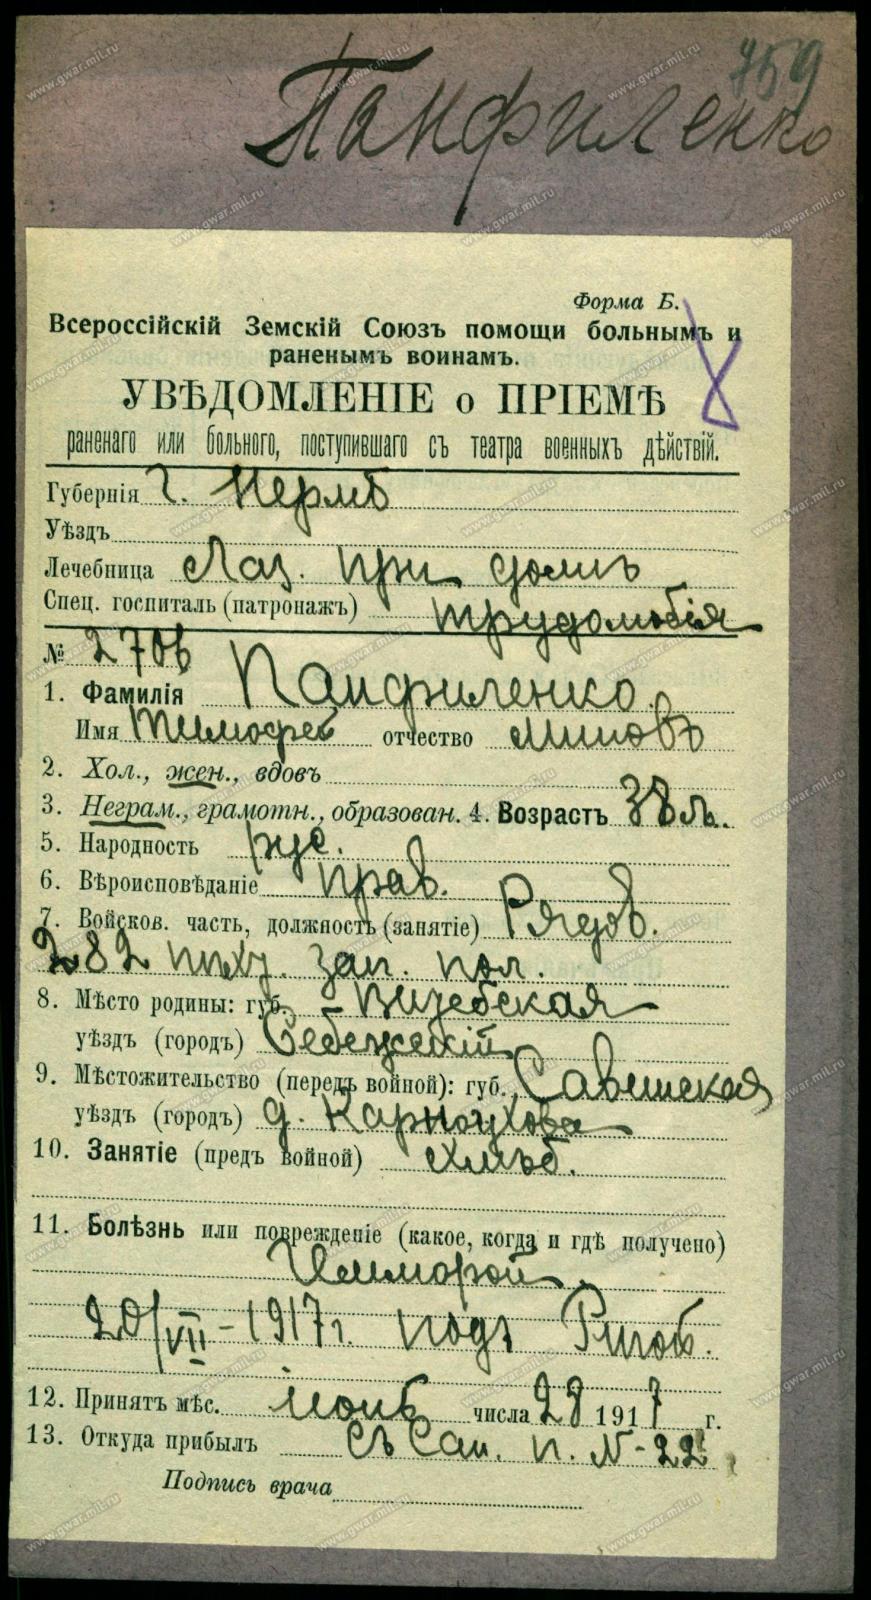 759
Панфиленко
Форма Б.
Всероссійскій Земскій Союзъ помощи больнымъ и
раненымъ воинамъ.
УВѢДОМЛЕНІЕ о ПРІЕМѢ
раненаго или больного, поступившаго съ театра военныхъ дѣйствій.
Губернія г. Пермь
Уѣздъ
Лечебница Лаз. при домѣ
Спец. госпиталь (патронажъ) трудолюбія
№ 2706
1. Фамилія Панфиленко
Имя Тимофей отчество
2. Хол., жен., вдовъ
3. Неграм., грамотн., образован. 4. Возрастъ 38 л.
5. Народность рус.
6. Вѣроисповѣданіе прав.
7. Войсков. часть, должность (занятіе) Рядов.
282 пѣх. зап. пол.
8. Мѣсто родины: губ. Витебская
уѣздъ (городъ) Себежскій
9. Мѣстожительство (передъ войной): губ.
уѣздъ (городъ) д. Карноухова
10. Занятіе (предъ войной) хлѣб.
11. Болѣзнь или поврежденіе (какое, когда и гдѣ получено)
20/VII – 1917 г. подъ Ригой.
12. Принятъ мѣс. числа 28 1917 г.
13. Откуда прибылъ Съ Сан. п. № 22
Подпись врача
www.gwar.mil.ru